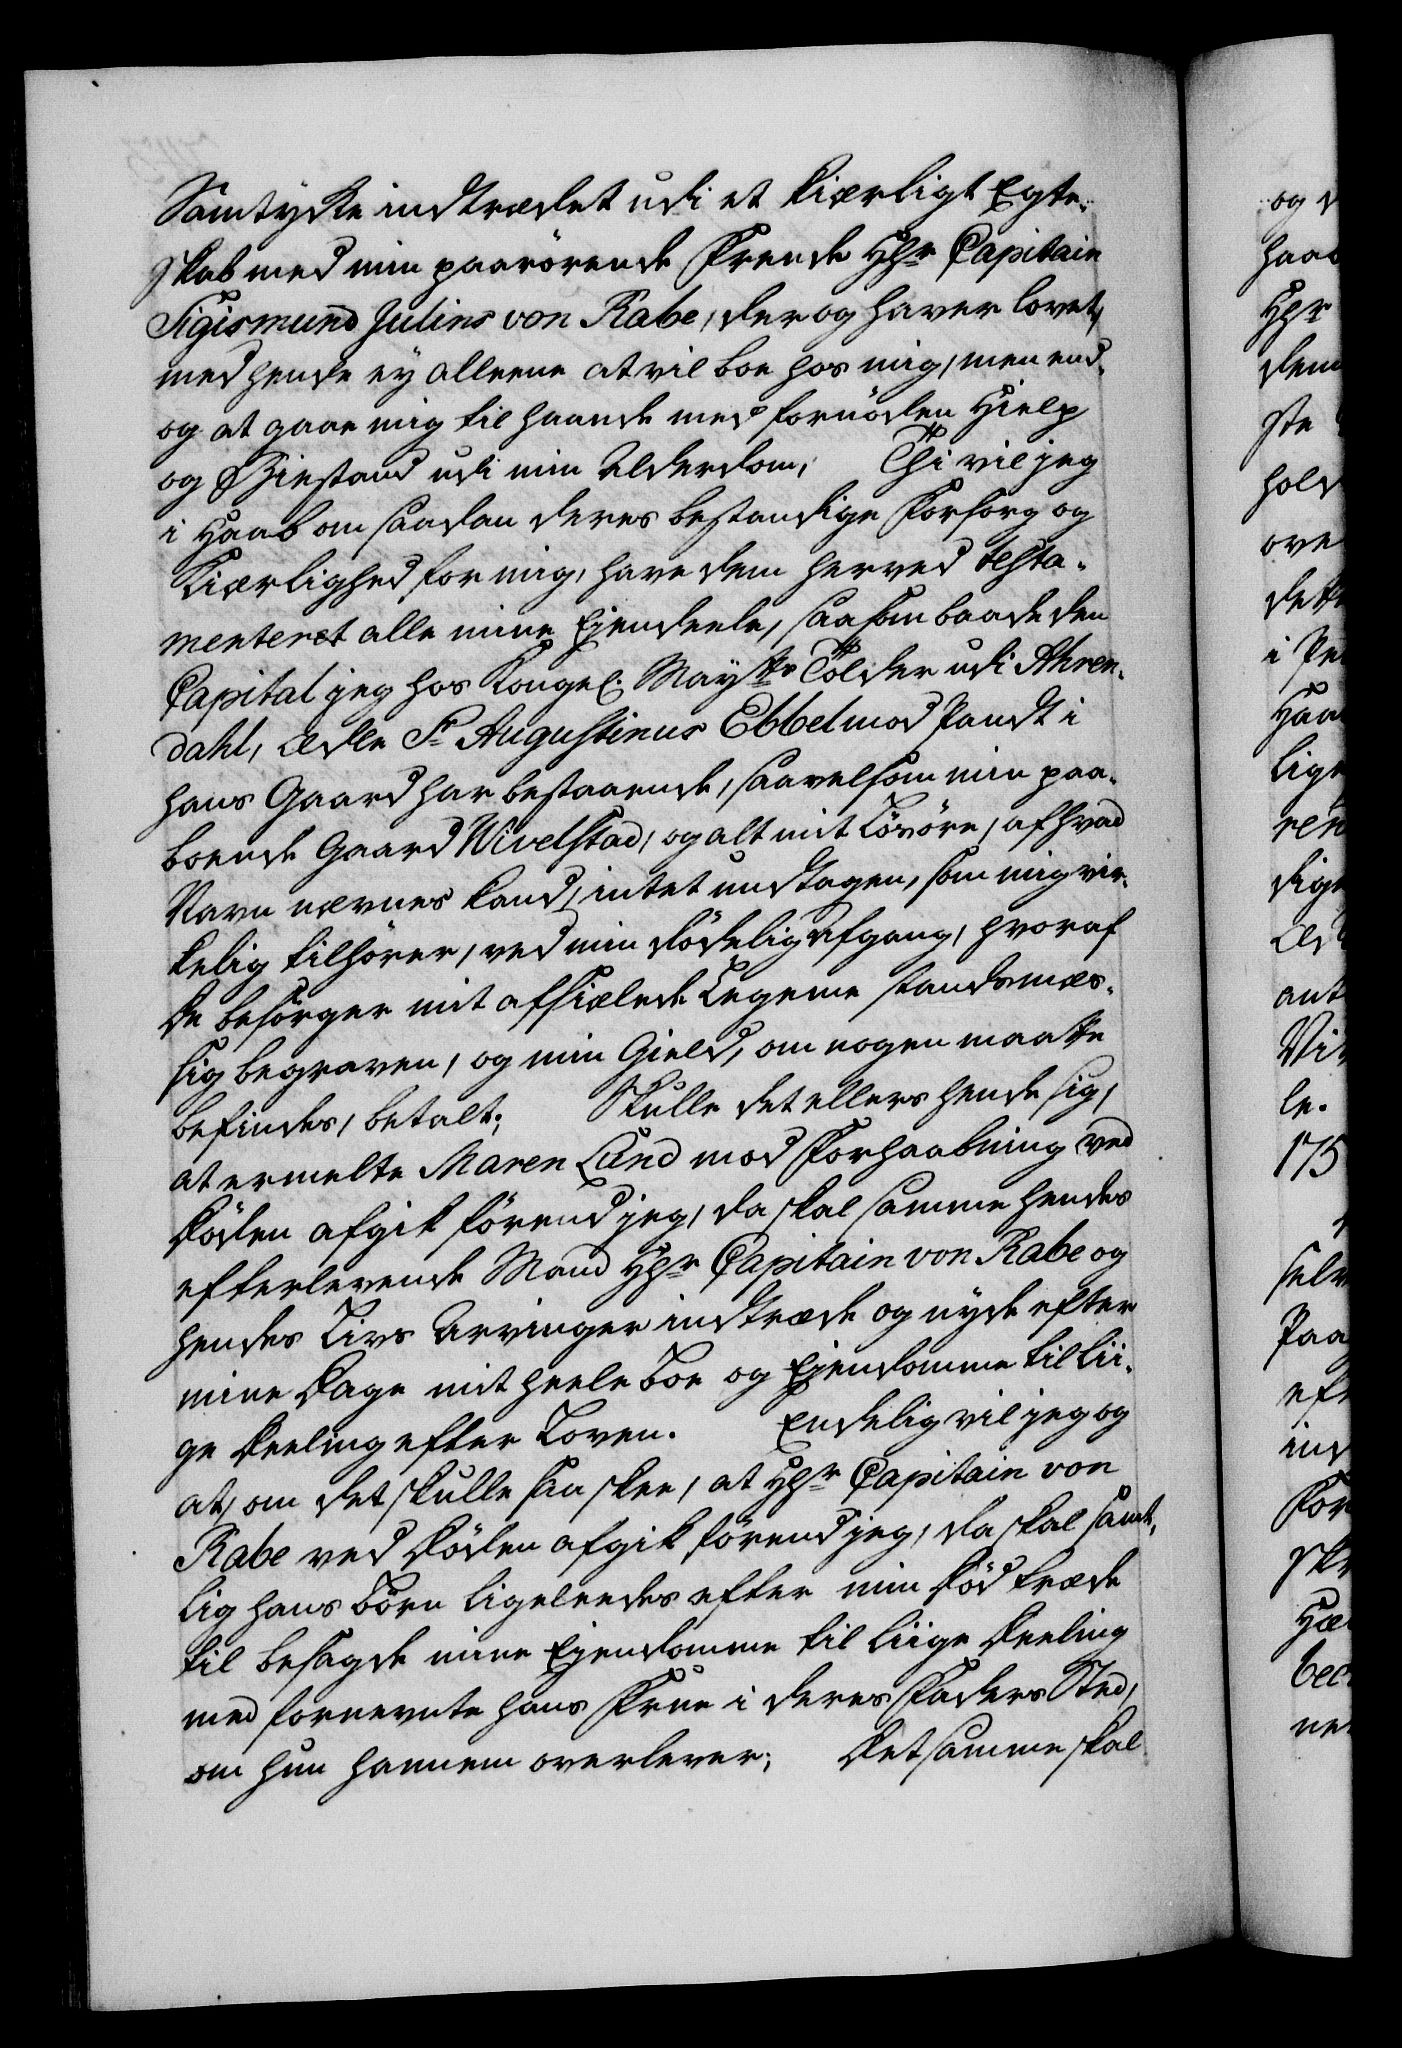 Samtyche indtrædet udi et kiærligt Egte-
skab med min paarörende Frende Hr Capitain
Sigismund Julius von Rabe, der og haver lovet,
med hende ey alleene at vil boe hos mig, men end-
og at gaae mig til haande med fornöden Hielp
og Biestand udi min Alderdom, Thi vil jeg
i Haab om saadan deres bestandige Forsorg og
Kiærlighed for mig, have dem herved testa-
menteret alle mine Ejendeele, saasom baade den
Capital jeg hos Kongel. Maytts Tolder udi Ahren-
dahl, Ædle Sr Augustinus Ebbel mod Pandt i
hans Gaard har bestaaende, saavelsom min paa-
boende Gaard Wivelstad, og alt mit Lösöre, af hvad
Navn nævnes kand, intet undtagen, som mig vir-
kelig tilhörer, ved min dödelig Afgang, hvoraf
De besörger mit afsiælede Legeme standsmæs-
sig begraven, og min Gield, om nogen maatte
befindes, betalt; Skulle det ellers hende sig,
at ermelte Maren Lund mod Forhaabning ved
Döden afgik förend jeg, da skal samme hendes
efterlevende Mand Hr Capitain von Rabe og
hendes Livs Arvinger indtræde og nyde efter
mine Dage mit heele Boe og Ejendomme til lii-
ge Deeling efter Loven. Endelig vil jeg og
at, om det skulle saa skee, at Hr Capitain von
Rabe ved Döden afgik förend jeg, da skal samt-
lig hans Börn ligeleedes efter min Död træde
til besagde mine Ejendomme til liige Deeling
med fornevnte hans Frue i deres Faders Sted,
om hun hannem overlever; Det samme skal